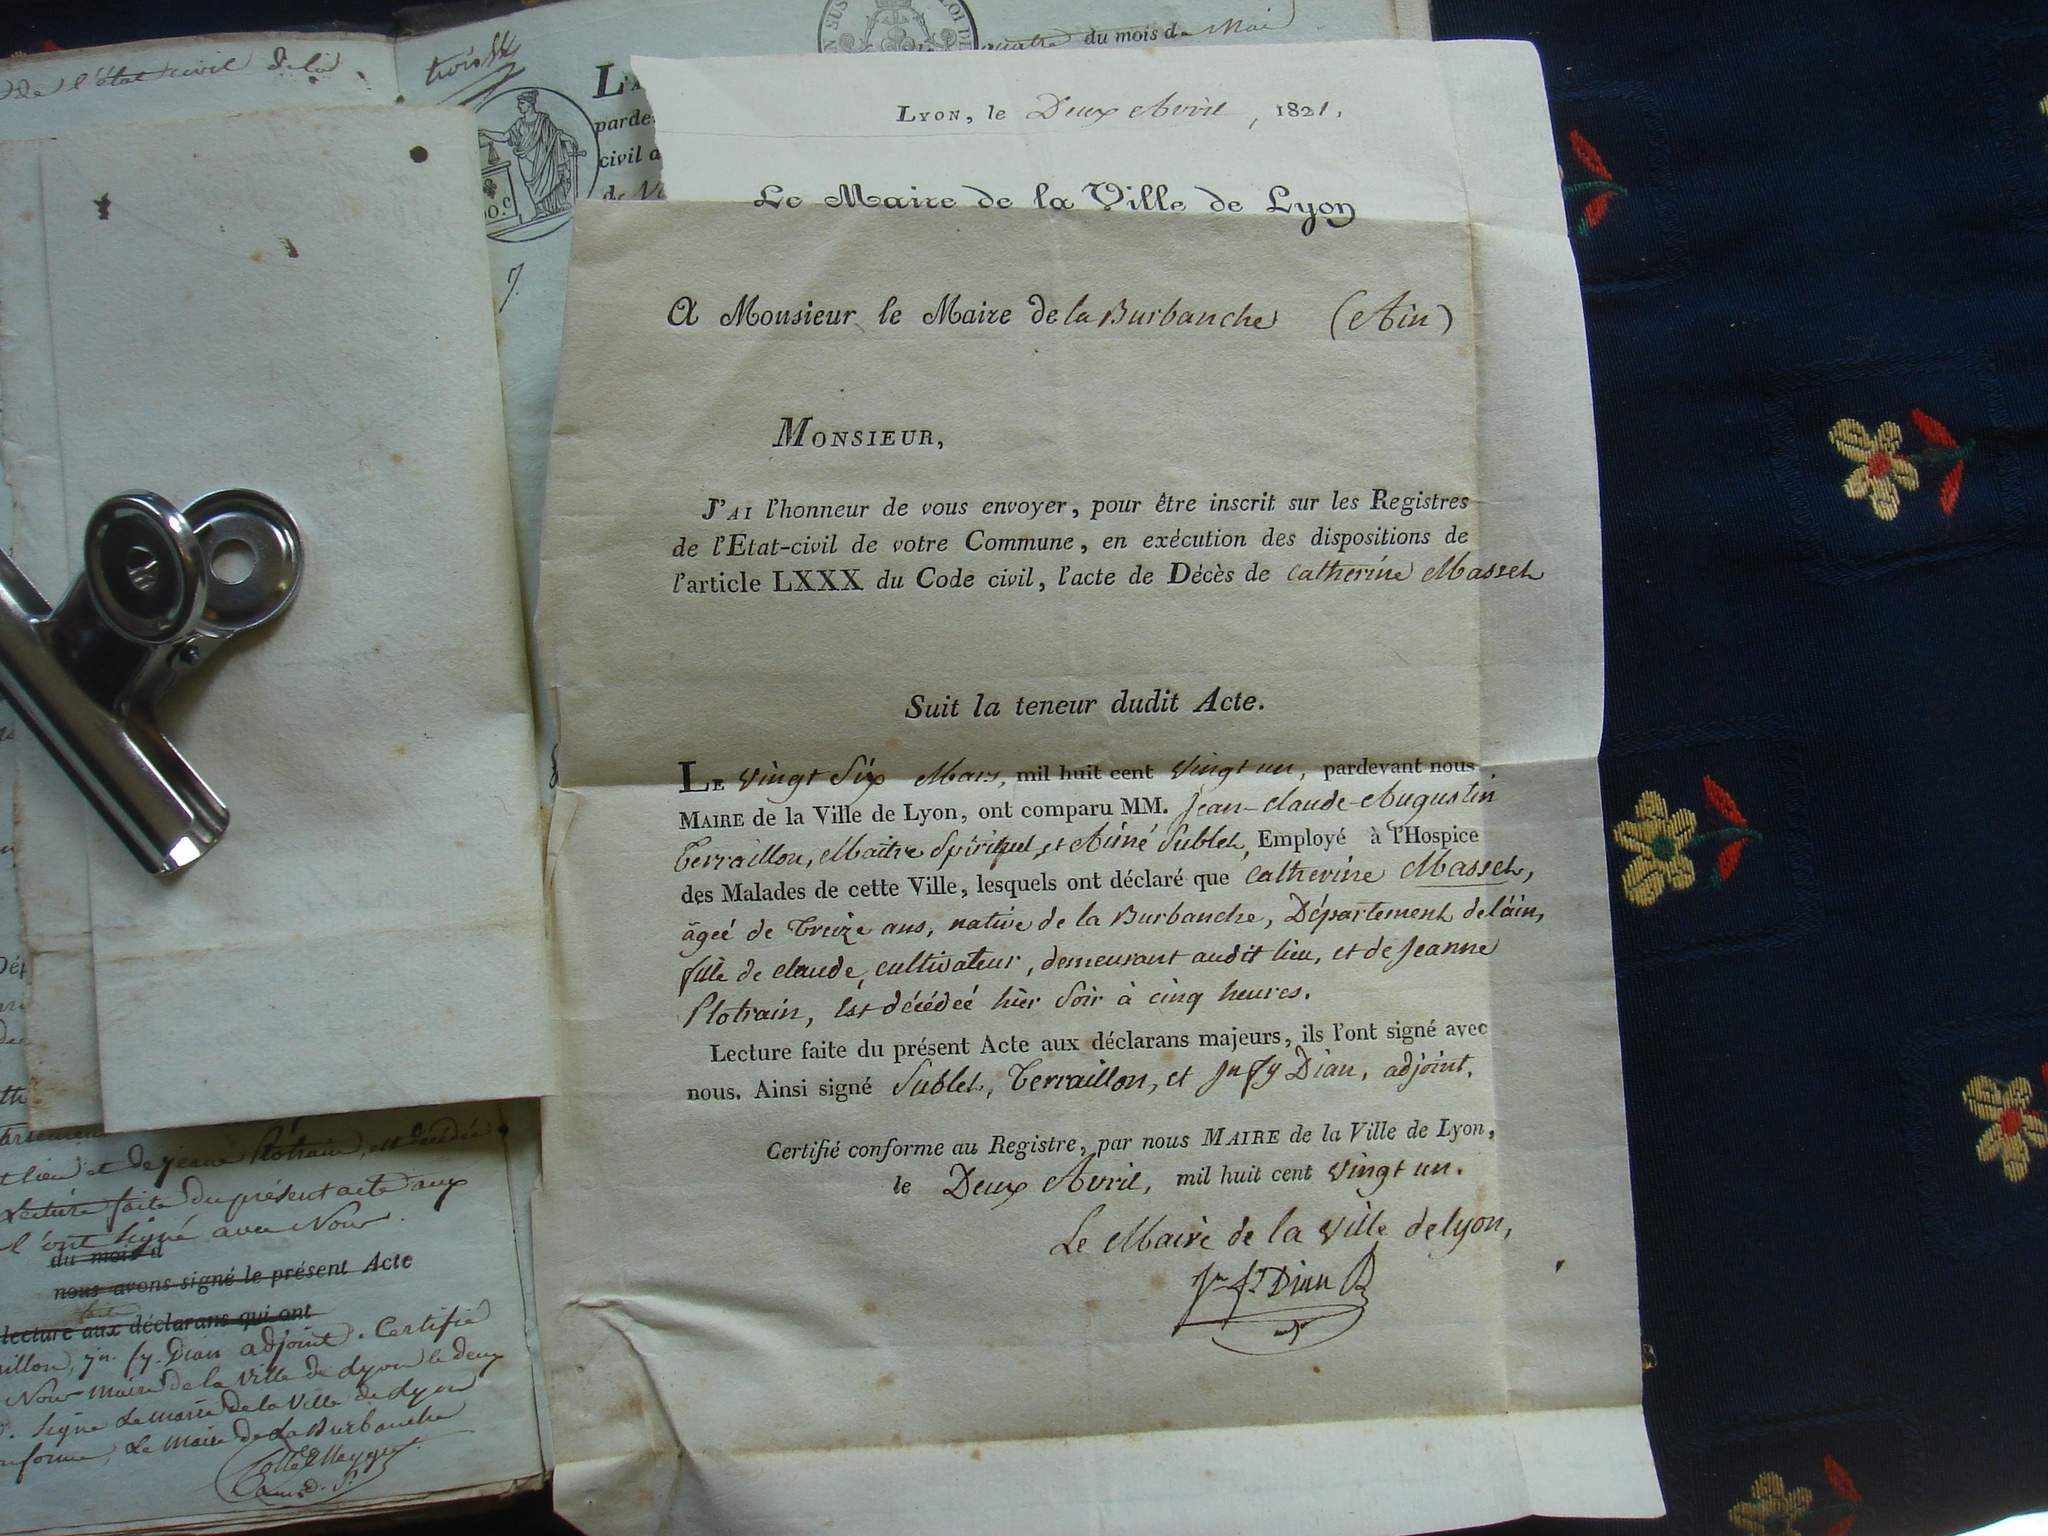 de l'état civil de la
trois
du mois de Mai
L'A
parde
civil a
de
7.
LYON, le Deux Avril, 1821.
Le Maire de la Ville de Lyon
A Monsieur le Maire de la Burbanche (Ain)
MONSIEUR,
J'AI l'honneur de vous envoyer, pour être inscrit sur les Registres
de l'Etat-civil de votre Commune, en exécution des dispositions de
l'article LXXX du Code civil, l'acte de Décès de Catherine Masset
Suit la teneur dudit Acte.
LE vingt Six Mars, mil huit cent vingt un, pardevant nous
MAIRE de la Ville de Lyon, ont comparu MM. Jean-Claude-Augustin
Terraillon, Maître Spirituel, et Aimé Sublet, Employé à l'Hospice
des Malades de cette Ville, lesquels ont déclaré que Catherine Masset,
âgée de treize ans, native de la Burbanche, Département de l'ain,
fille de Claude, cultivateur, demeurant audit lieu, et de Jeanne
Plotrain, Est décédée hier Soir à cinq heures.
Lecture faite du présent Acte aux déclarans majeurs, ils l'ont signé avec
nous. Ainsi signé Sublet, Terraillon, et Jn fy Dian, adjoint.
Certifié conforme au Registre, par nous MAIRE de la Ville de Lyon,
le Deux Avril, mil huit cent vingt un.
Le Maire de la ville de Lyon,
Jn fs Dian
lieu et de jeane Plotrain, est décédée
Lecture faite du présent acte aux
l'ont signé avec Nous.
du mois d
nous avons signé le présent Acte
faite
lecture aux déclarans qui ont
illon, jn. fy. Dian adjoint. Certifié
Nous maire de la ville de Lyon le deux
Signé Le maire de la Ville de Lyon
forme, Le maire de La Burbanche